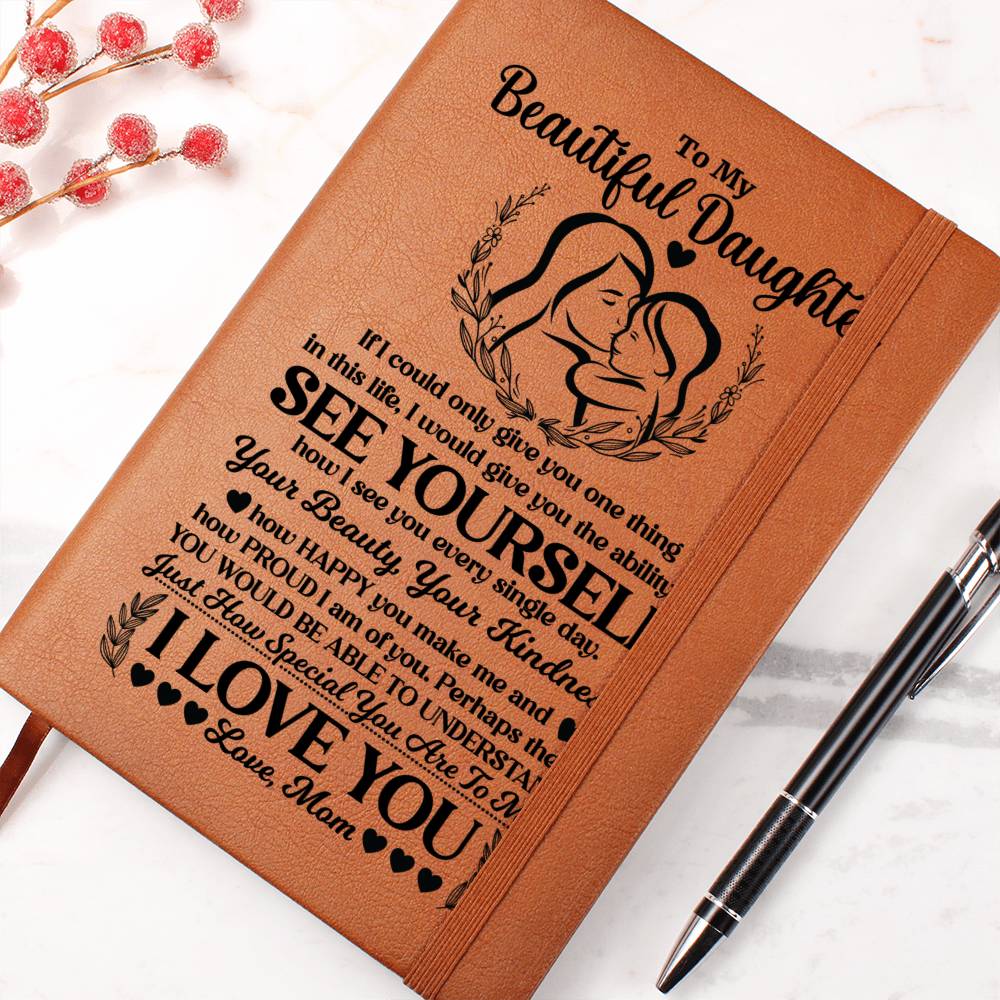 To My
Beautiful Daughte
If I could only give you one thing
in this life, I would give you the ability
SEE YOURSEL
how I see you every single day.
Your Beauty, Your Kindne
how HAPPY you make me and
how PROUD I am of you. Perhaps the
YOU WOULD BE ABLE TO UNDERSTA
Just How Special You Are To M
I LOVE YOU
Love, Mom